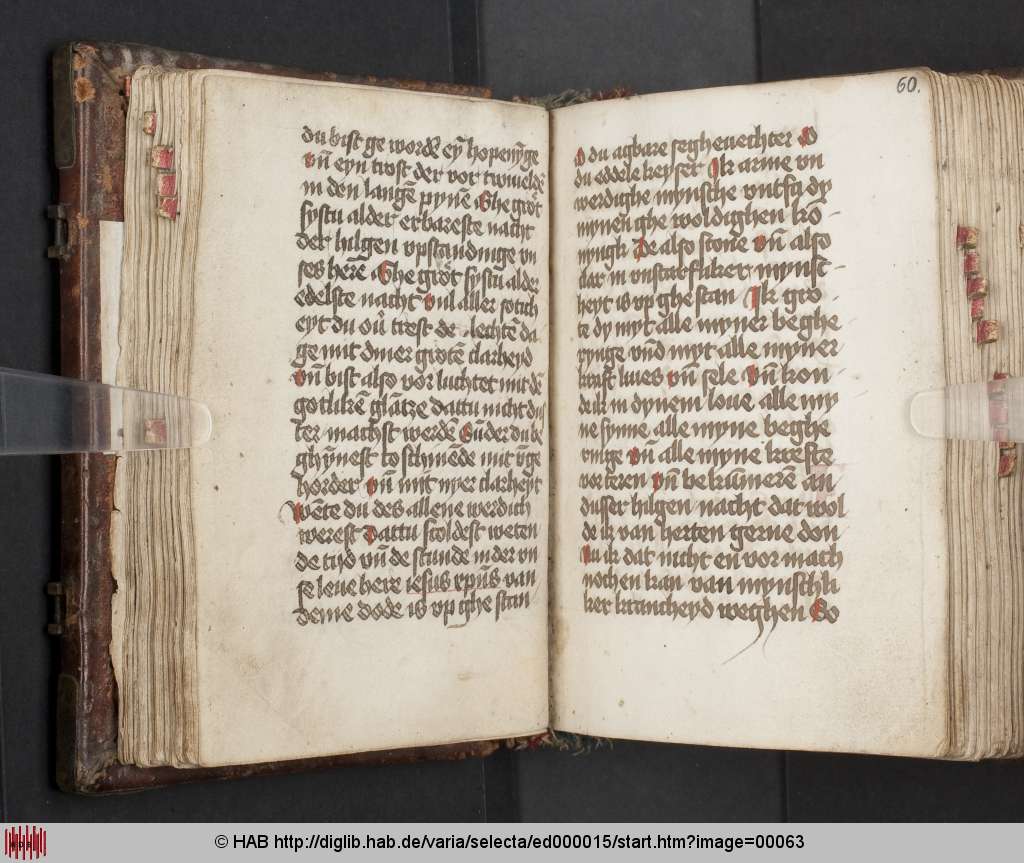 du bist ge wordē eȳ hopenȳge
vn̄ eyn trost der vor twiueldē
in den langē pynē Ghe grot
systu alder erbareste nacht
der hilgen vpstandinge vn
ses herē Ghe grot systu alder
edelste nacht vul aller sotich
eyt du ou trest de lechtē da
ge mit diner grotē clarheyd
vn̄ bist also vor luchtet mit dē
gotlikē glātze dattu nicht dus
ter machst werdē Sūder du be
ghȳnest to schinēde mit
vn̄ mit nyer clarheyt
Wēte du des allene werdich
werest Dattu scoldest weten
de tijd vn̄ de stunde in der vn
se leue here iesus xpūs van
deme dode is vp ghe stan
60.
O du agbare seghevechter O
du eddele keyser Ik arme vn
werdighe mynsche vntfa dy
mynen ghe woldighen ko-
nyngk De also scone vn̄ also
clar in vnstarfliker mynsc-
heyt is vp ghe stan Ik gro-
te dy myt alle myner beghe
rynge vnd myt alle myner
kraft liues vn̄ sele Vn̄ kon-
de ik in dynem loue alle my
ne synne alle myne beghe
ringe vn̄ alle myne krefte
vorteren vn̄ bekūmeren an
dusser hilgen nacht dat wol
de ik van herten gerne don
Nu ik dat nicht en vor mach
noch en kan van mynschli
ker krancheyd weghen So
© HAB http://diglib.hab.de/varia/selecta/ed000015/start.htm?image=00063